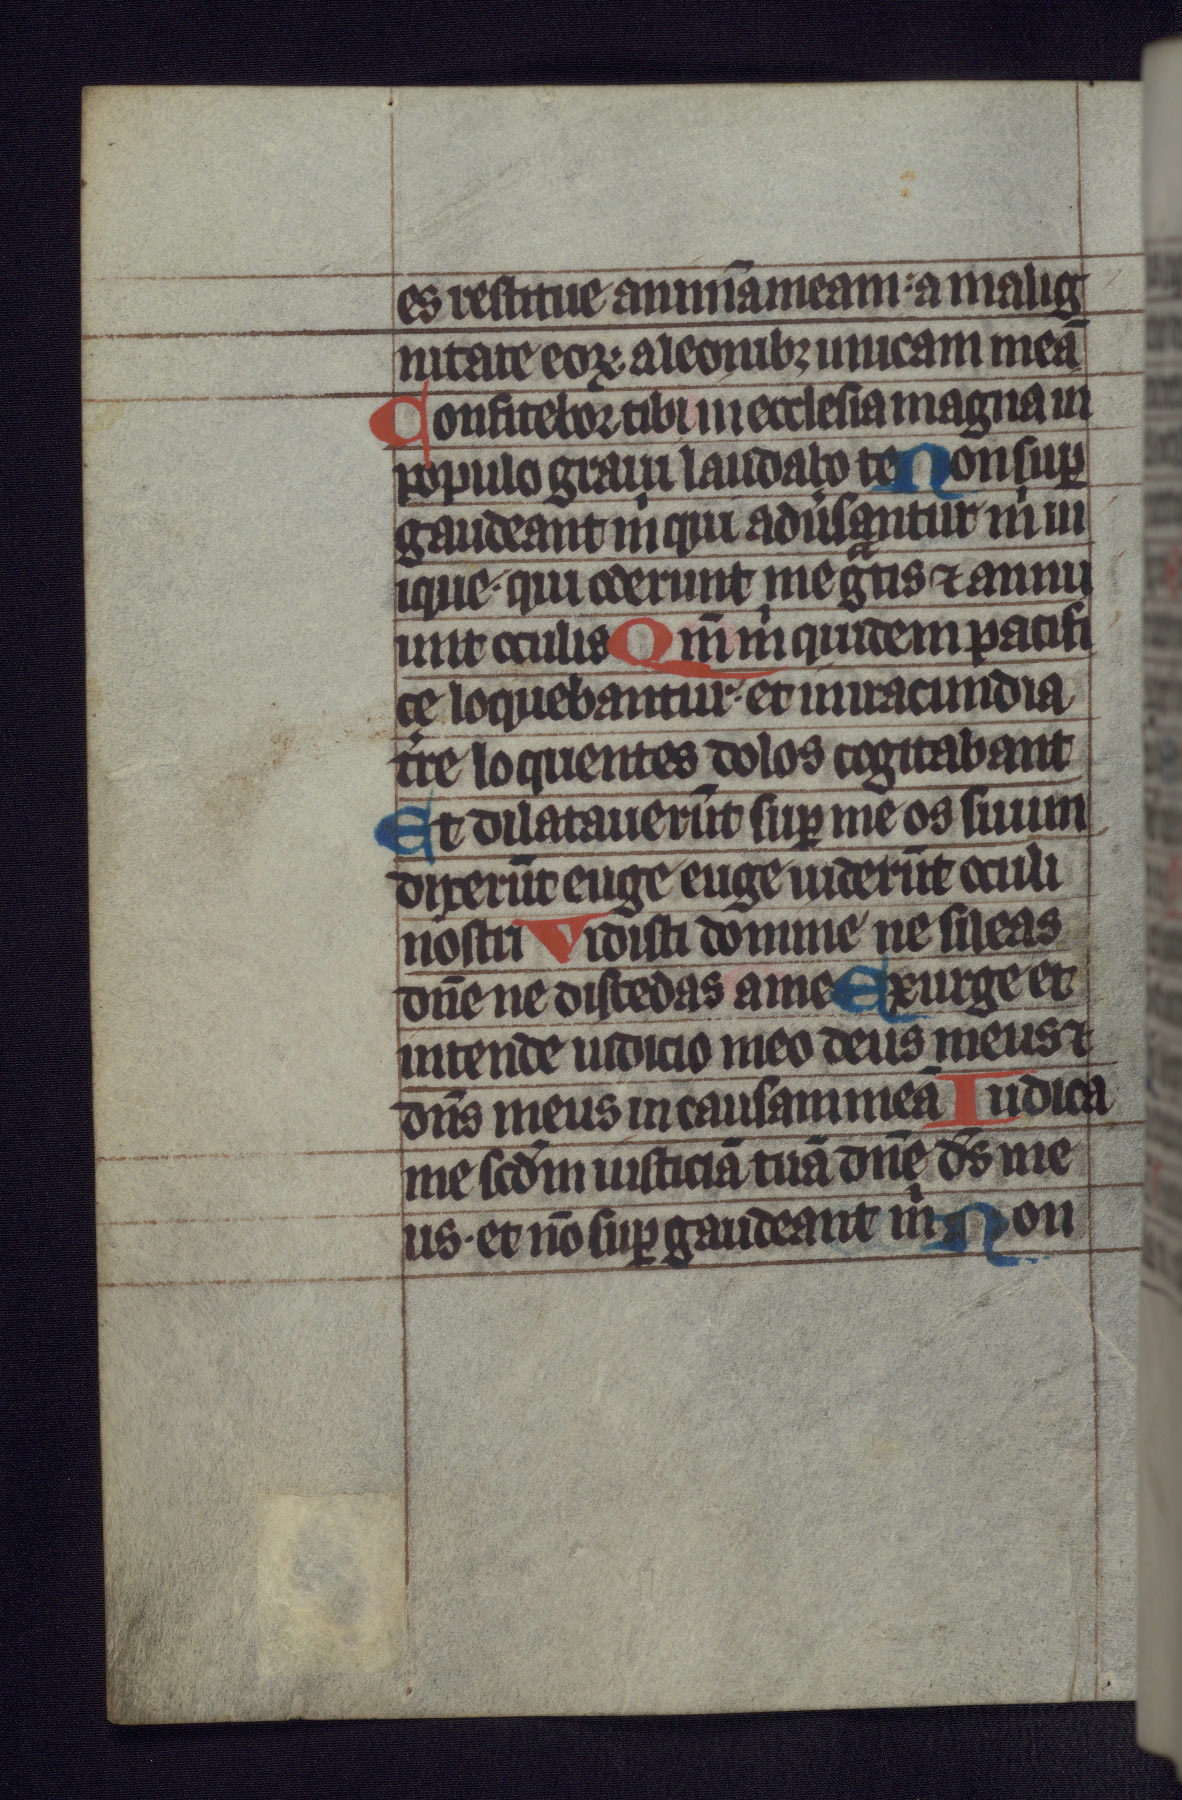 es restitue animā meam: a malig
nitate eoꝝ. a leonibꝫ unicam meā
Confitebor tibi in ecclesia magna in
populo graui laudabo te Non suꝑ
gaudeant mͥ qui aduͥsantur mͥ in
ique. qui oderunt me gͣtis ⁊ annu
unt oculis Qm̄ mͥ quidem pacifi
ce loquebantur. et in iracundia
tͥre loquentes dolos cogitabant
Et dilatauerūt suꝑ me os suum
dixerūt euge euge uiderūt oculi
nostri Vidisti domine ne sileas
dn̄e ne discedas a me Exurge et
intende iudicio meo deus meus ⁊
dn̄s meus in causam meā Iudica
me scd̄m iusticiā tuā dn̄e ds̄ me
us. et nō suꝑgaudeant mͥ Non